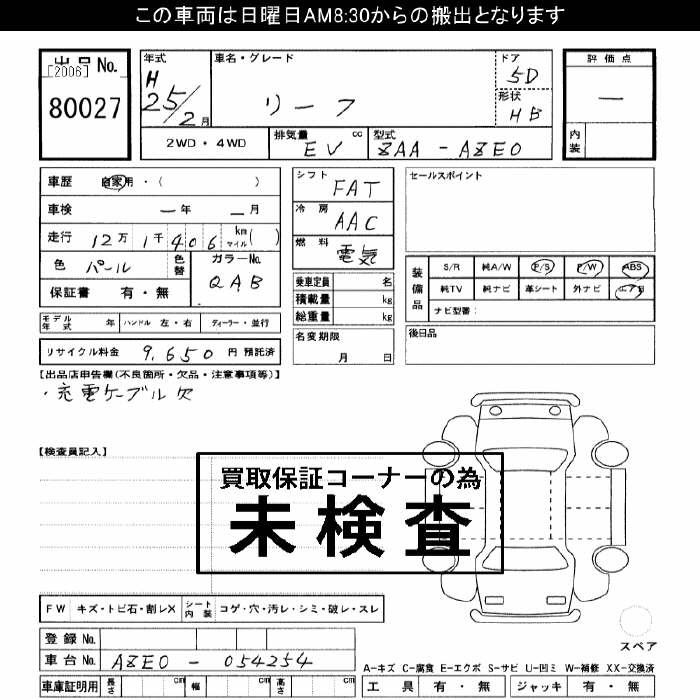 この車両は日曜日AM8:30からの搬出となります
出品No.
[2006]
80027
年式
H
25/2月
車名・グレード
リーフ
ドア
5D
形状
HB
評価点
一
内装
2WD・4WD
排気量 cc
EV
型式
ZAA - AZE0
車歴 自家用・( )
車検 一年 一月
走行 12万1千406 km マイル( )
色 パール 色替
カラーNo.
QAB
保証書 有・無
シフト
FAT
冷房
AAC
燃料
電気
乗車定員 名
積載量 kg
総重量 kg
セールスポイント
装備品
S/R 純A/W P/S P/W ABS
純TV 純ナビ 革シート 外ナビ エアB
ナビ型番:
モデル年式 年 ハンドル 左・右 ディーラー・並行
名変期限
月 日
後日品
リサイクル料金 9,650 円 預託済
【出品店申告欄(不良箇所・欠品・注意事項等)】
・充電ケーブル欠
【検査員記入】
買取保証コーナーの為
未検査
FW キズ・トビ石・割レX シート内装 コゲ・穴・汚レ・シミ・破レ・スレ
登録No.
車台No. AZE0 - 054254
スペア
A-キズ C-腐食 E-エクボ S-サビ U-凹ミ W-補修 XX-交換済
車庫証明用 長さ cm 幅 cm 高さ cm
工具 有・無 ジャッキ 有・無